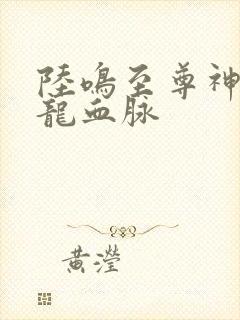 陸鳴至尊神
龍血脉
黃瀅